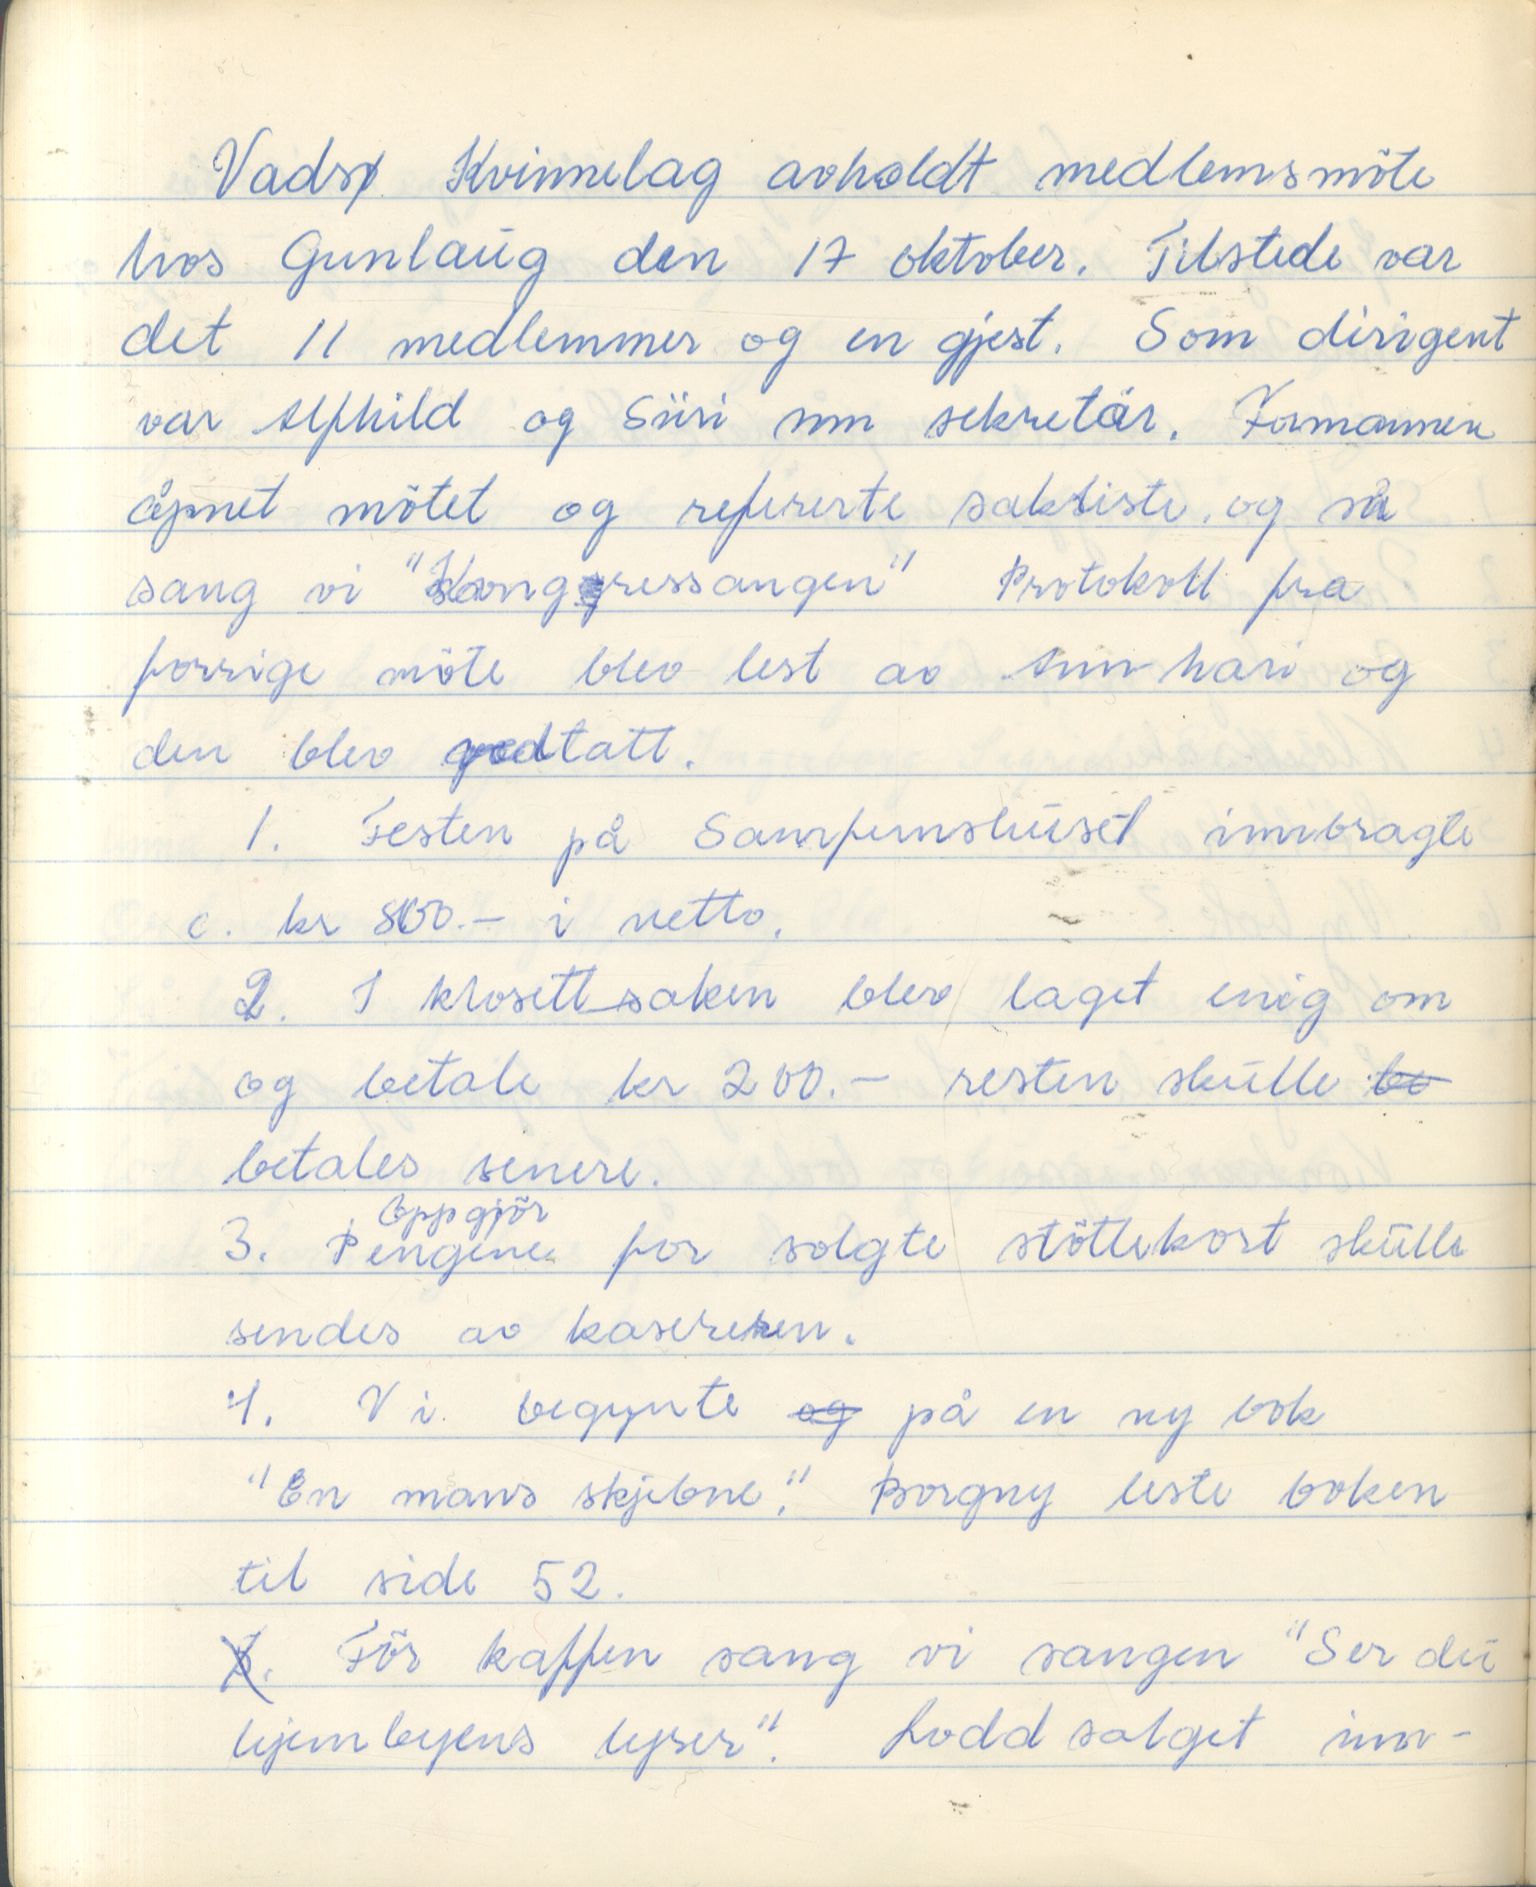 Vadsø Kvinnelag avholdt medlemsmöte
hos Gunlaug den 17 oktober. Tilstede var
det 11 medlemmer og en gjest. Som dirigent
var Alfhild og Siiri som sekretär. Formannen
åpnet mötet og refererte saksliste, og så
sang vi "Kongressangen" Protokoll fra
forrige möte blev lest av Ann-hari og
den blev godtatt.
1. Festen på Samfunshuset innbragte
c. kr 800.- i netto.
2. I klosett-saken blev laget enig om
og betale kr 200.- resten skulle be
betales senere.
Oppgjör
3. Pengene for solgte stöttekort skulle
sendes av kasereren.
4. Vi begynte og på en ny bok
"En mans skjebne". Borgny leste boken
til side 52.
5. För kaffen sang vi sangen "Ser du
hjembyens lyser". Loddsalget inn-